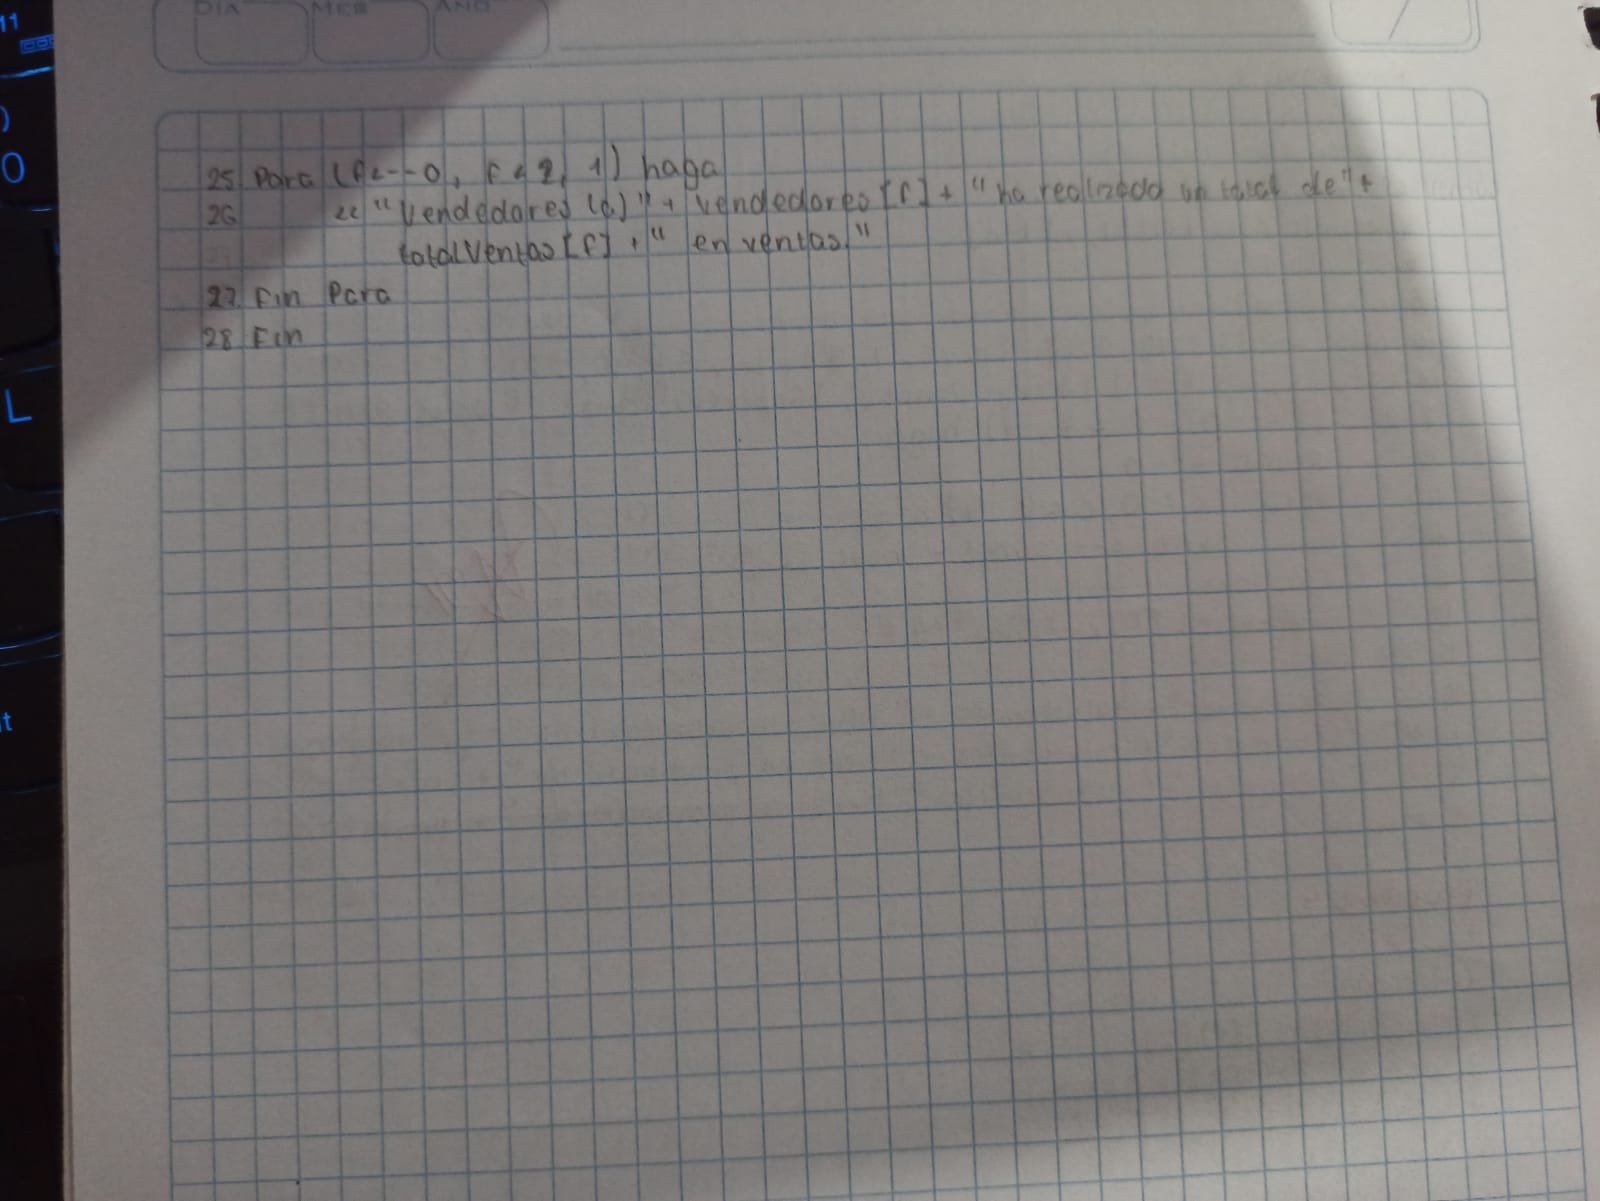 DIA MES AÑO
25 Para (f<--0, f<2, 1) haga
26 << "Vendedores (a)" + vendedores [f] + "ha realizado un total de" +
totalVentas [f] + " en ventas."
27. Fin Para
28 Fin